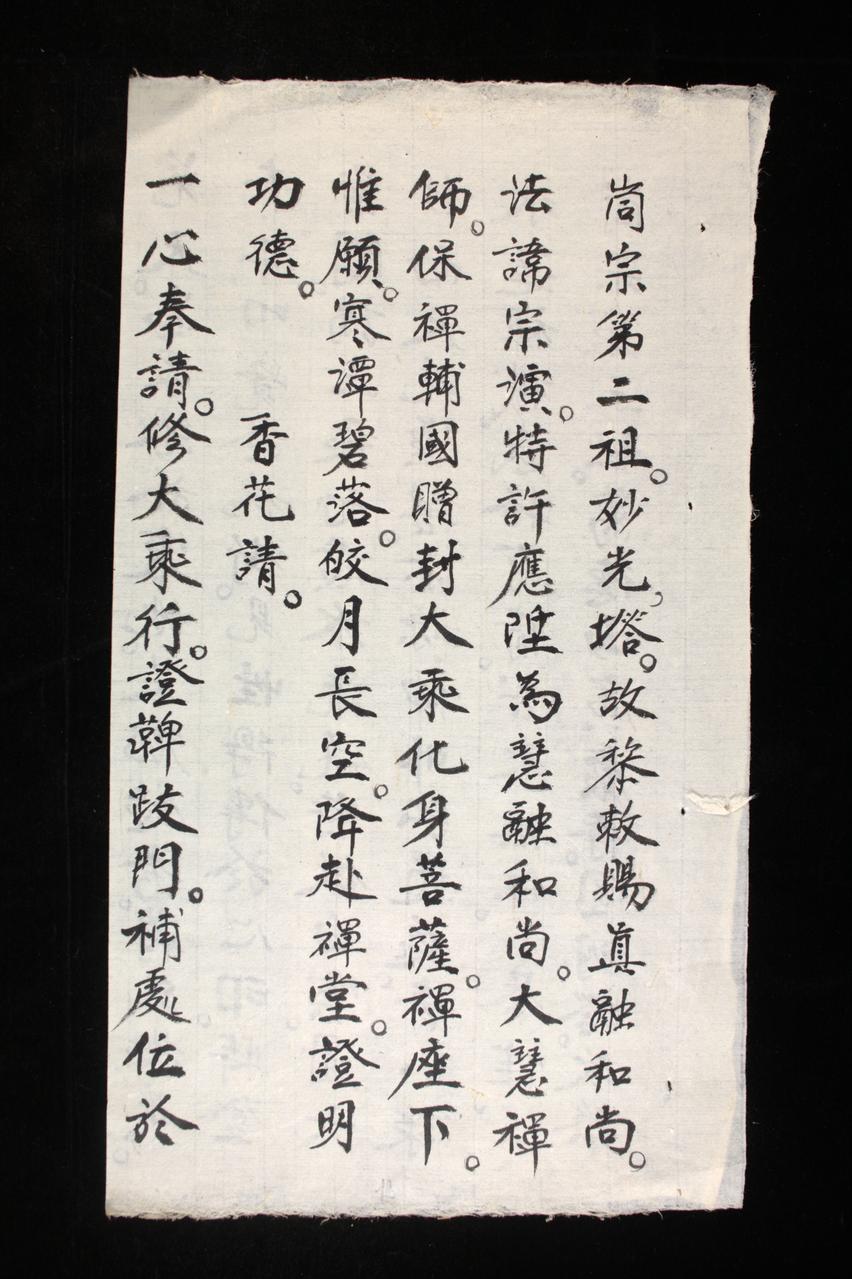 峝宗第二祖。妙光塔。故黎敕賜真融和尚。
法諱宗演。特許應陞為慧融和尚。大慧禪
師。保禪輔國贈封大乘化身菩薩。禪座下。
惟願。寒潭碧落。皎月長空。降赴禪堂。證明
功德。 香花請。
一心奉請。修大乘行。證鞞跋門。補處位於